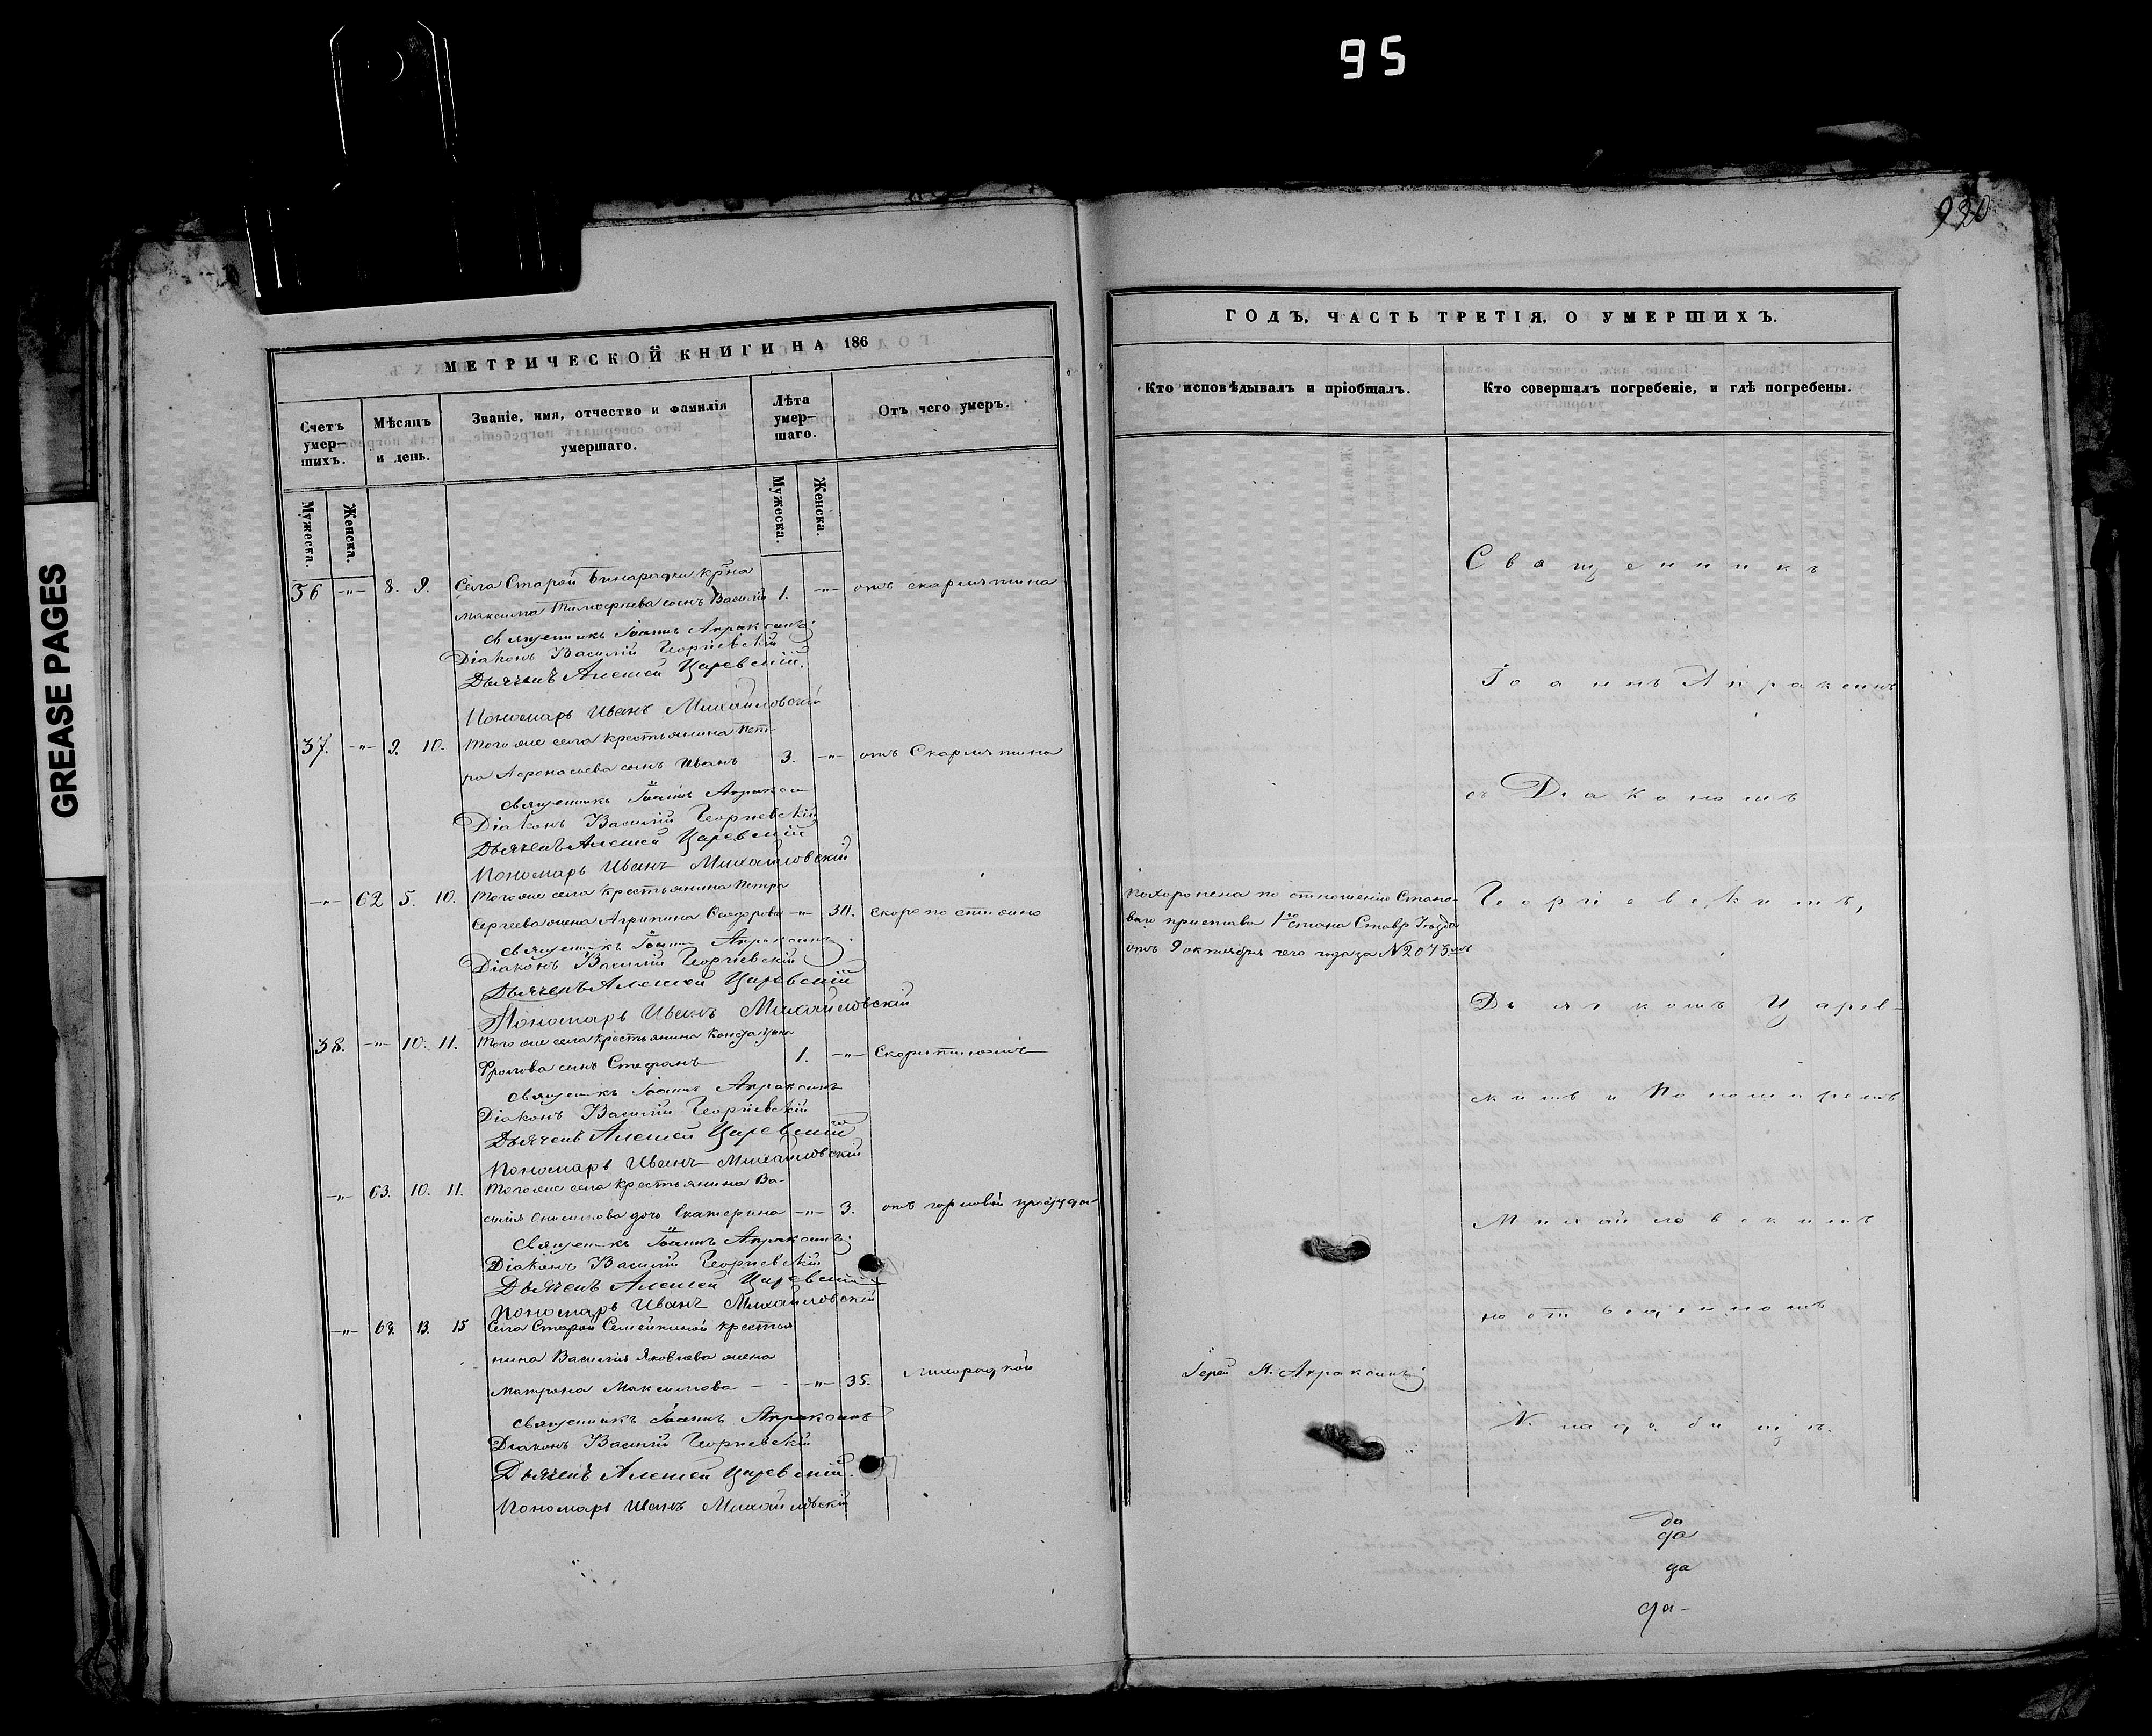 95
930
GREASE PAGES
МЕТРИЧЕСКОЙ КНИГИ НА 186
Счетъ умер-
шихъ.
Мѣсяцъ
и день.
Званіе, имя, отчество и фамилія
умершаго.
Лѣта
умер-
шаго.
Отъ чего умеръ.
Мужеска.
Женска.
Мужеска.
Женска.
36 -„- 8. 9. Села Старой Бинарадки кр-на
Максима Тимофѣева сынъ Василій 1. -„- отъ скарлатина
Священникъ Іоаннъ Апраксинъ
Діаконъ Василій Георгіевскій
Дьячекъ Алексей Царевскій.
Пономарь Иванъ Михайловскій
37. -„- 9. 10. Того же села крестьянина Пет-
ра Афонасьева сынъ Иванъ 3. -„- отъ Скарлатина
Священникъ Іоаннъ Апраксин
Діаконъ Василій Георгіевскій
Дьячекъ Алексей Царевскій
Пономарь Иванъ Михайловскій
-„- 62 5. 10. Того же села крестьянина Петра
Сергѣева жена Агрипина -„- 30. скоропостижно
Священникъ Іоаннъ Апраксинъ
Діаконъ Василій Георгіевскій
Дьячекъ Алексей Царевскій
Пономарь Иванъ Михайловскій
38. -„- 10. 11. Того же села крестьянина
Фролова сынъ Стефанъ 1. -„-
Священникъ Іоаннъ Апраксинъ
Діаконъ Василій Георгіевскій
Дьячекъ Алексей Царевскій
Пономарь Иванъ Михайловскій
-„- 63. 10. 11. Того же села крестьянина Ва-
силія дочь Екатерина -„- 3. отъ горловой простуды
Священникъ Іоаннъ Апраксинъ
Діаконъ Василій Георгіевскій
Дьячекъ Алексей Царевскій
Пономарь Иванъ Михайловскій
-„- 64. 13. 15 Села Старой Семейкиной крестья
нина Василія Яковлева жена
Матрона Максимова -„- 35. Лихорадкой
Священникъ Іоаннъ Апраксинъ
Діаконъ Василій Георгіевскій
Дьячекъ Алексей Царевскій.
Пономарь Иванъ Михайловскій
ГОДЪ, ЧАСТЬ ТРЕТІЯ, О УМЕРШИХЪ.
Кто исповѣдывалъ и пріобщалъ.
Кто совершалъ погребеніе, и гдѣ погребены.
похоронена по отношенію Стано-
ваго пристава 1го стана Ставр. Уѣзда
отъ 9 октября сего года за №
Іерей И. Апраксинъ
Священникъ
Іоаннъ Апраксинъ
съ Діакономъ
Георгіевскимъ,
Дьячкомъ Царев-
скимъ и Пономаремъ
Михайловскимъ
на отведенномъ
Кладбищѣ.
да
да
да
да-